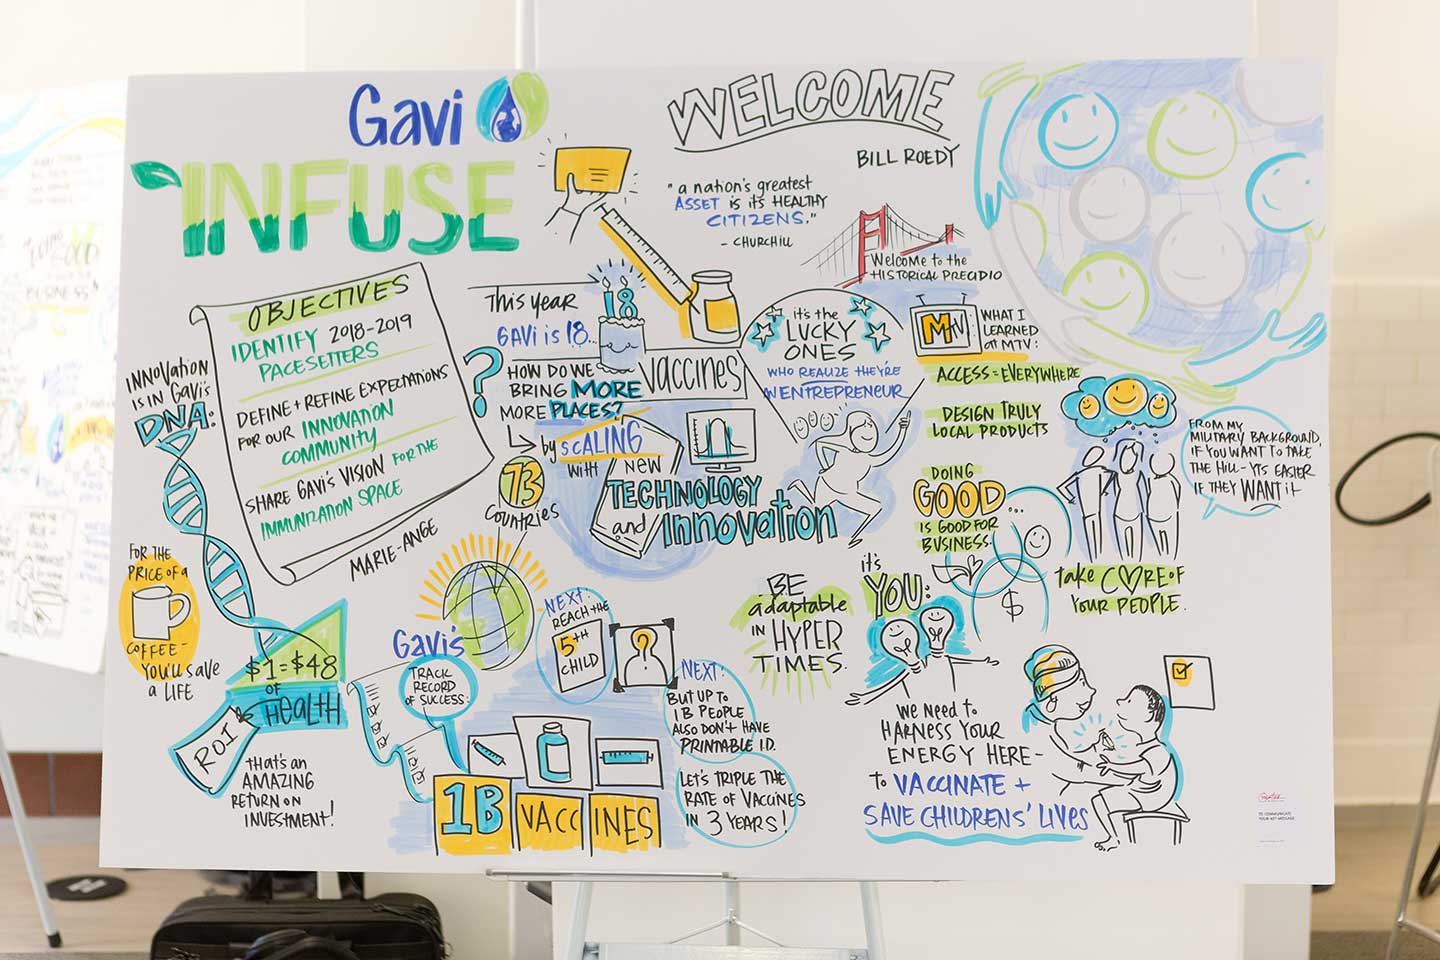 Gavi
INFUSE
WELCOME
BILL ROEDY
"a nation's greatest
ASSET is it's HEALTHY
CITIZENS."
- CHURCHILL
Welcome to the
HISTORICAL PRECIDIO
OBJECTIVES
IDENTIFY 2018-2019
PACESETTERS
DEFINE + REFINE EXPECTATIONS
FOR OUR INNOVATION
COMMUNITY
SHARE GAVI'S VISION FOR THE
IMMUNIZATION SPACE
MARIE-ANGE
INNOVATION
IS IN GAVI'S
DNA:
FOR THE
PRICE OF A
COFFEE-
YOU'LL SAVE
A LIFE
$1=$48
OF
HEALTH
ROI
THAT'S AN
AMAZING
RETURN ON
INVESTMENT!
This year
GAVI is 18...
18
? HOW DO WE
BRING MORE
MORE PLACES?
VACCINES
by SCALING
WITH NEW
TECHNOLOGY
and INNOVATION
73
COUNTRIES
it's the
LUCKY
ONES
WHO REALIZE THEY'RE
AN ENTREPRENEUR
MTV
WHAT I
LEARNED
AT MTV:
ACCESS = EVERYWHERE
DESIGN TRULY
LOCAL PRODUCTS
DOING
GOOD...
IS GOOD FOR
BUSINESS.
$
take CARE OF
YOUR PEOPLE.
FROM MY
MILITARY BACKGROUND,
IF YOU WANT TO TAKE
THE HILL - IT'S EASIER
IF THEY WANT it
Gavi's
TRACK
RECORD
OF SUCCESS:
1B VACCINES
NEXT:
REACH THE
5TH
CHILD
?
NEXT:
BUT UP TO
1B PEOPLE
ALSO DON'T HAVE
PRINTABLE I.D.
LET'S TRIPLE THE
RATE OF VACCINES
IN 3 YEARS!
BE
adaptable
IN HYPER
TIMES.
it's
YOU:
WE NEED to
HARNESS YOUR
ENERGY HERE -
to VACCINATE +
SAVE CHILDRENS' LIVES